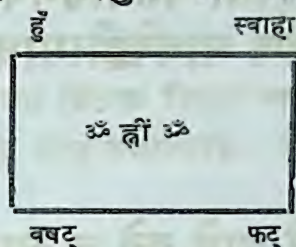 हुं स्वाहा
ॐ त्रीं ॐ
वषट् फट्